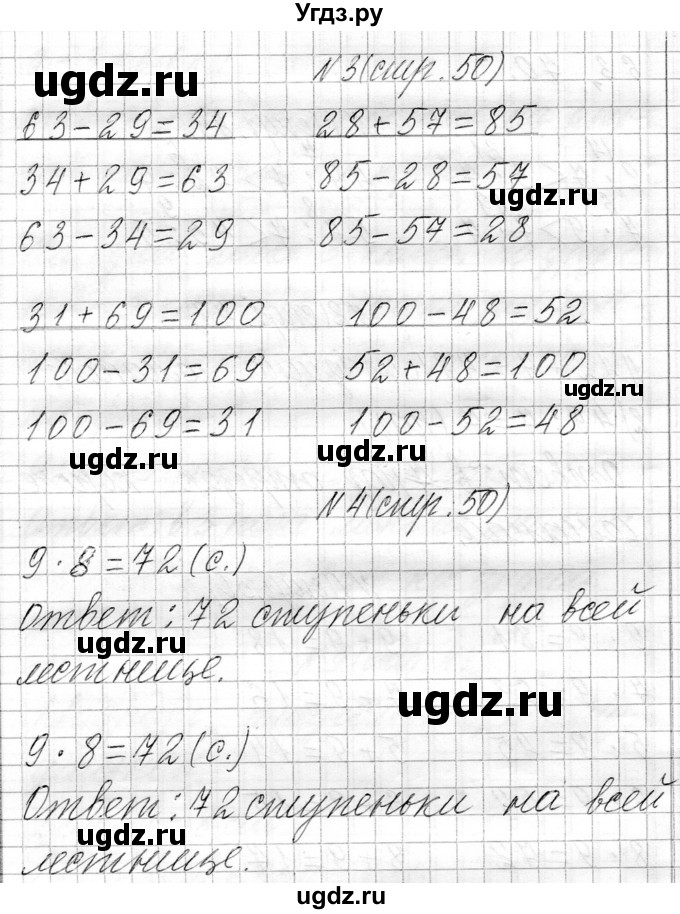 Угдз.ру
ugdz.ru
N 3 (стр. 50)
63 - 29 = 34 28 + 57 = 85
34 + 29 = 63 85 - 28 = 57
ugdz.ru
63 - 34 = 29 85 - 57 = 28
31 + 69 = 100 100 - 48 = 52
100 - 31 = 69 52 + 48 = 100
ugdz.ru
100 - 69 = 31 100 - 52 = 48
ugdz.ru ugdz.ru
N 4 (стр. 50)
9 · 8 = 72 (с.)
Ответ: 72 ступеньки на всей
ugdz.ru
лестнице.
ugdz.ru
9 · 8 = 72 (с.)
Ответ: 72 ступеньки на всей
ugdz.ru
лестнице.
ugdz.ru